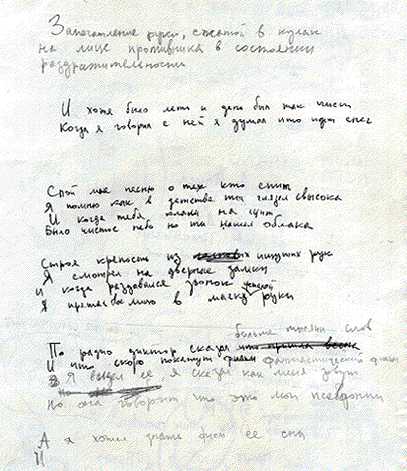 Запечатление руки, сжатой в кулак
на лице противника в состоянии
раздражительности
И хотя было лето и день был так чист
Когда я говорил с ней я думал что идёт снег
Спой мне песню о тех кто спит
Я помню как в детстве ты глядел свысока
И когда тебя клали на щит
Было чистое небо но ты нашел облака
Строя крепость из ищущих рук
Я смотрел на дверные замки
И когда раздавался звонок
Я прятал лицо в маску руки
больше тысячи слов
По радио диктор сказал что пришла весна
И что скоро покажут фильм фантастический
Я видел её я сказал как меня зовут
Но она говорит что это мой псевдоним
А я хотел знать её сны
И